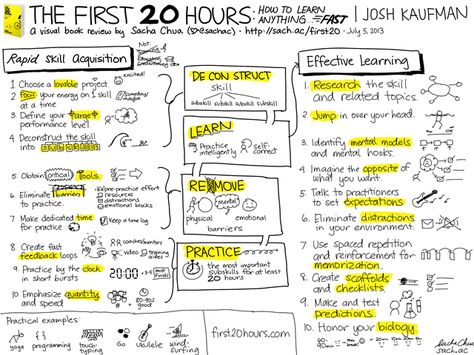 THE FIRST 20 HOURS: HOW TO LEARN ANYTHING... FAST | JOSH KAUFMAN
a visual book review by Sacha Chua (@sachac) • http://sach.ac/first20 • July 5, 2013
Rapid Skill Acquisition
Not:
excited!
1. Choose a lovable project
2. Focus your energy on 1 skill at a time
3. Define your target performance level
4. Deconstruct the skill into subskills
5. Obtain critical tools
6. Eliminate barriers to practice.
practice effort
resources
distractions
emotional blocks
7. Make dedicated time for practice
Keep a time log
8. Create fast feedback loops
coaches/mentors
video
9. Practice by the clock in short bursts
20:00
×3-5
Must finish!
10. Emphasize quantity and speed
80-90% good
DECONSTRUCT
Skill
subskill subskill subskill subskill
LEARN
Practice intelligently
self-correct
REMOVE
physical
mental
emotional
barriers
PRACTICE
the most important subskills for at least 20 HOURS
Effective Learning
1. Research the skill and related topics.
2. Jump in over your head.
3. Identify mental models and mental hooks.
4. Imagine the opposite of what you want.
5. Talk to practitioners to set expectations
6. Eliminate distractions in your environment.
7. Use spaced repetition and reinforcement for memorization.
8. Create scaffolds and checklists
9. Make and test predictions.
10. Honor your biology.
Practical examples:
yoga
programming
touch-typing
Go
ukulele
wind-surfing
first20hours.com
Sacha Chua
sach.ac